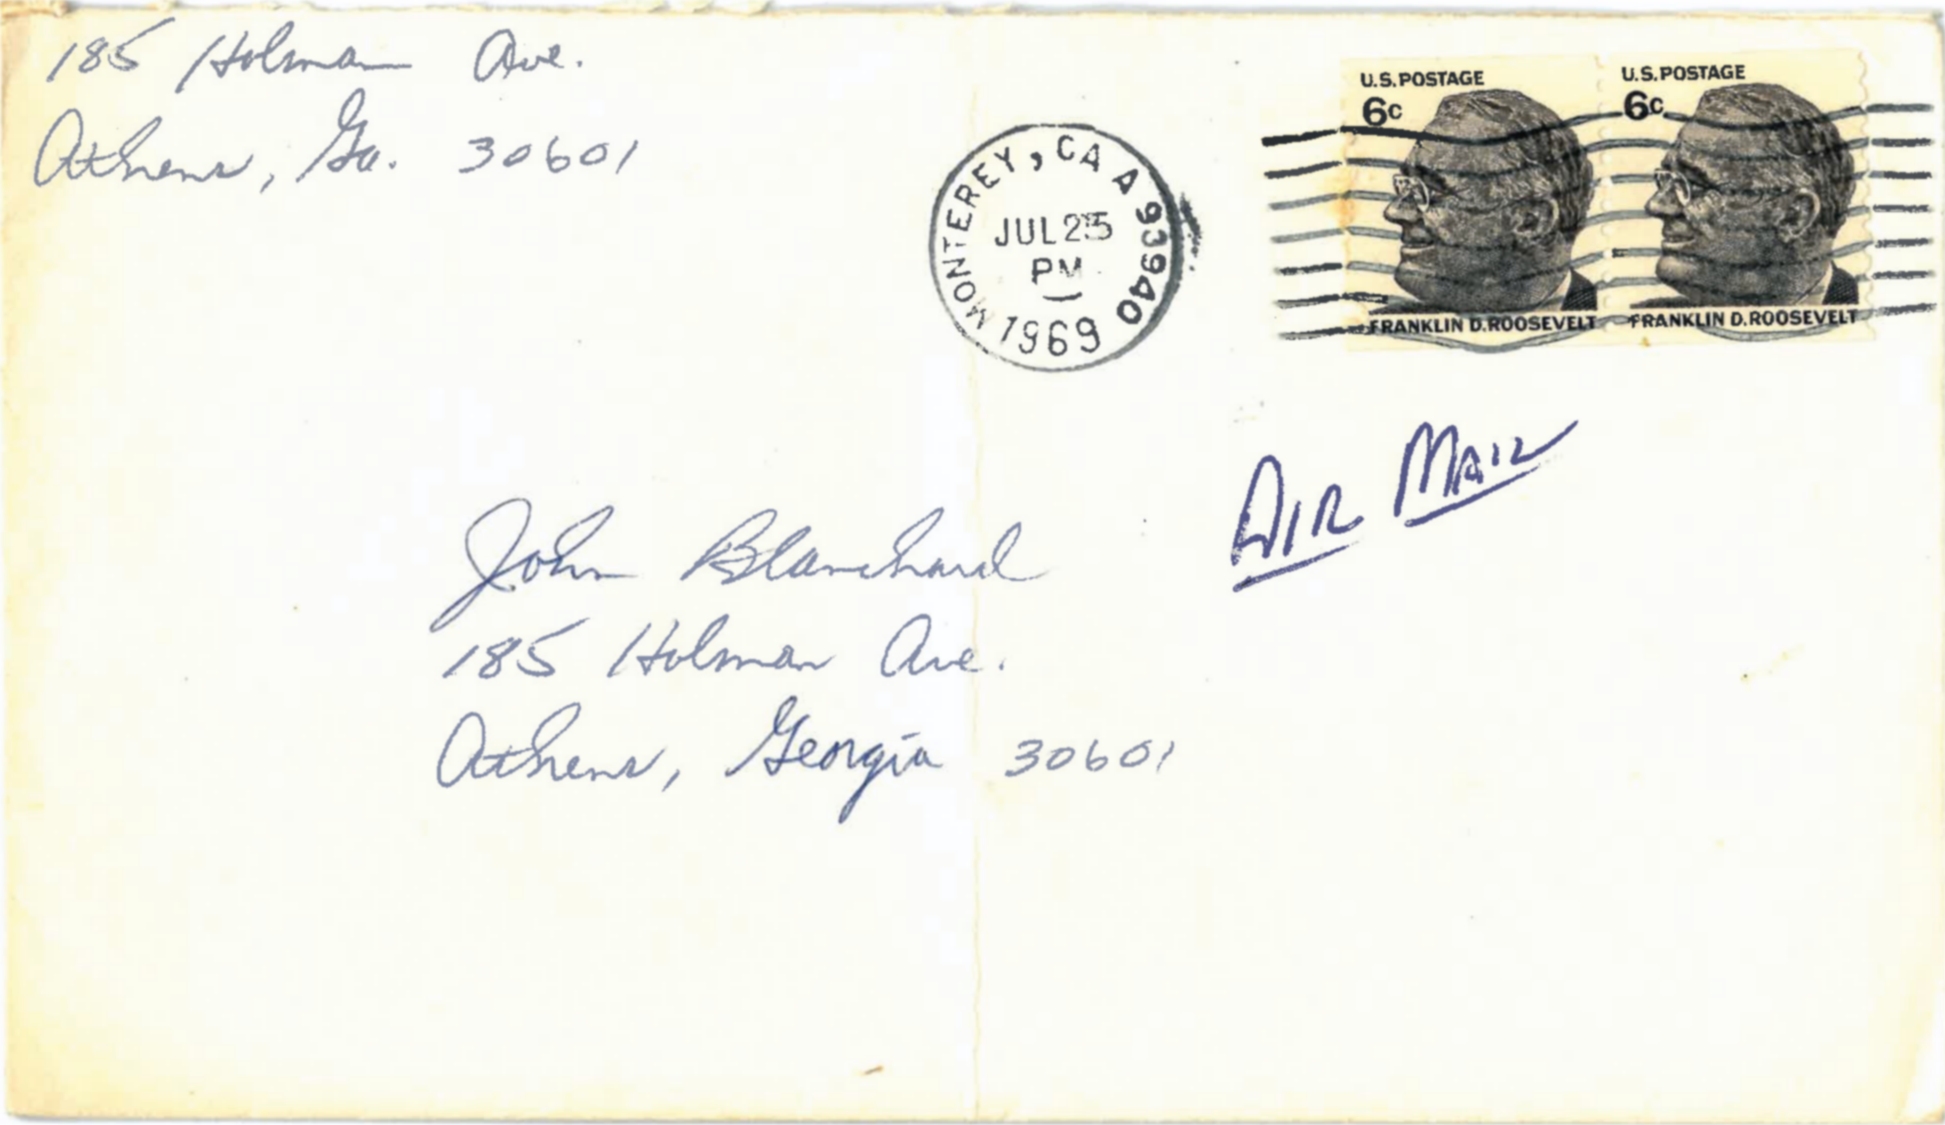 185 Holman Ave.
Athens, Ga. 30601
MONTEREY, CA A 93940
JUL 25
PM
1969
U.S. POSTAGE
6c
FRANKLIN D. ROOSEVELT
U.S. POSTAGE
6c
FRANKLIN D. ROOSEVELT
AIR MAIL
John Blanchard
185 Holman Ave.
Athens, Georgia 30601